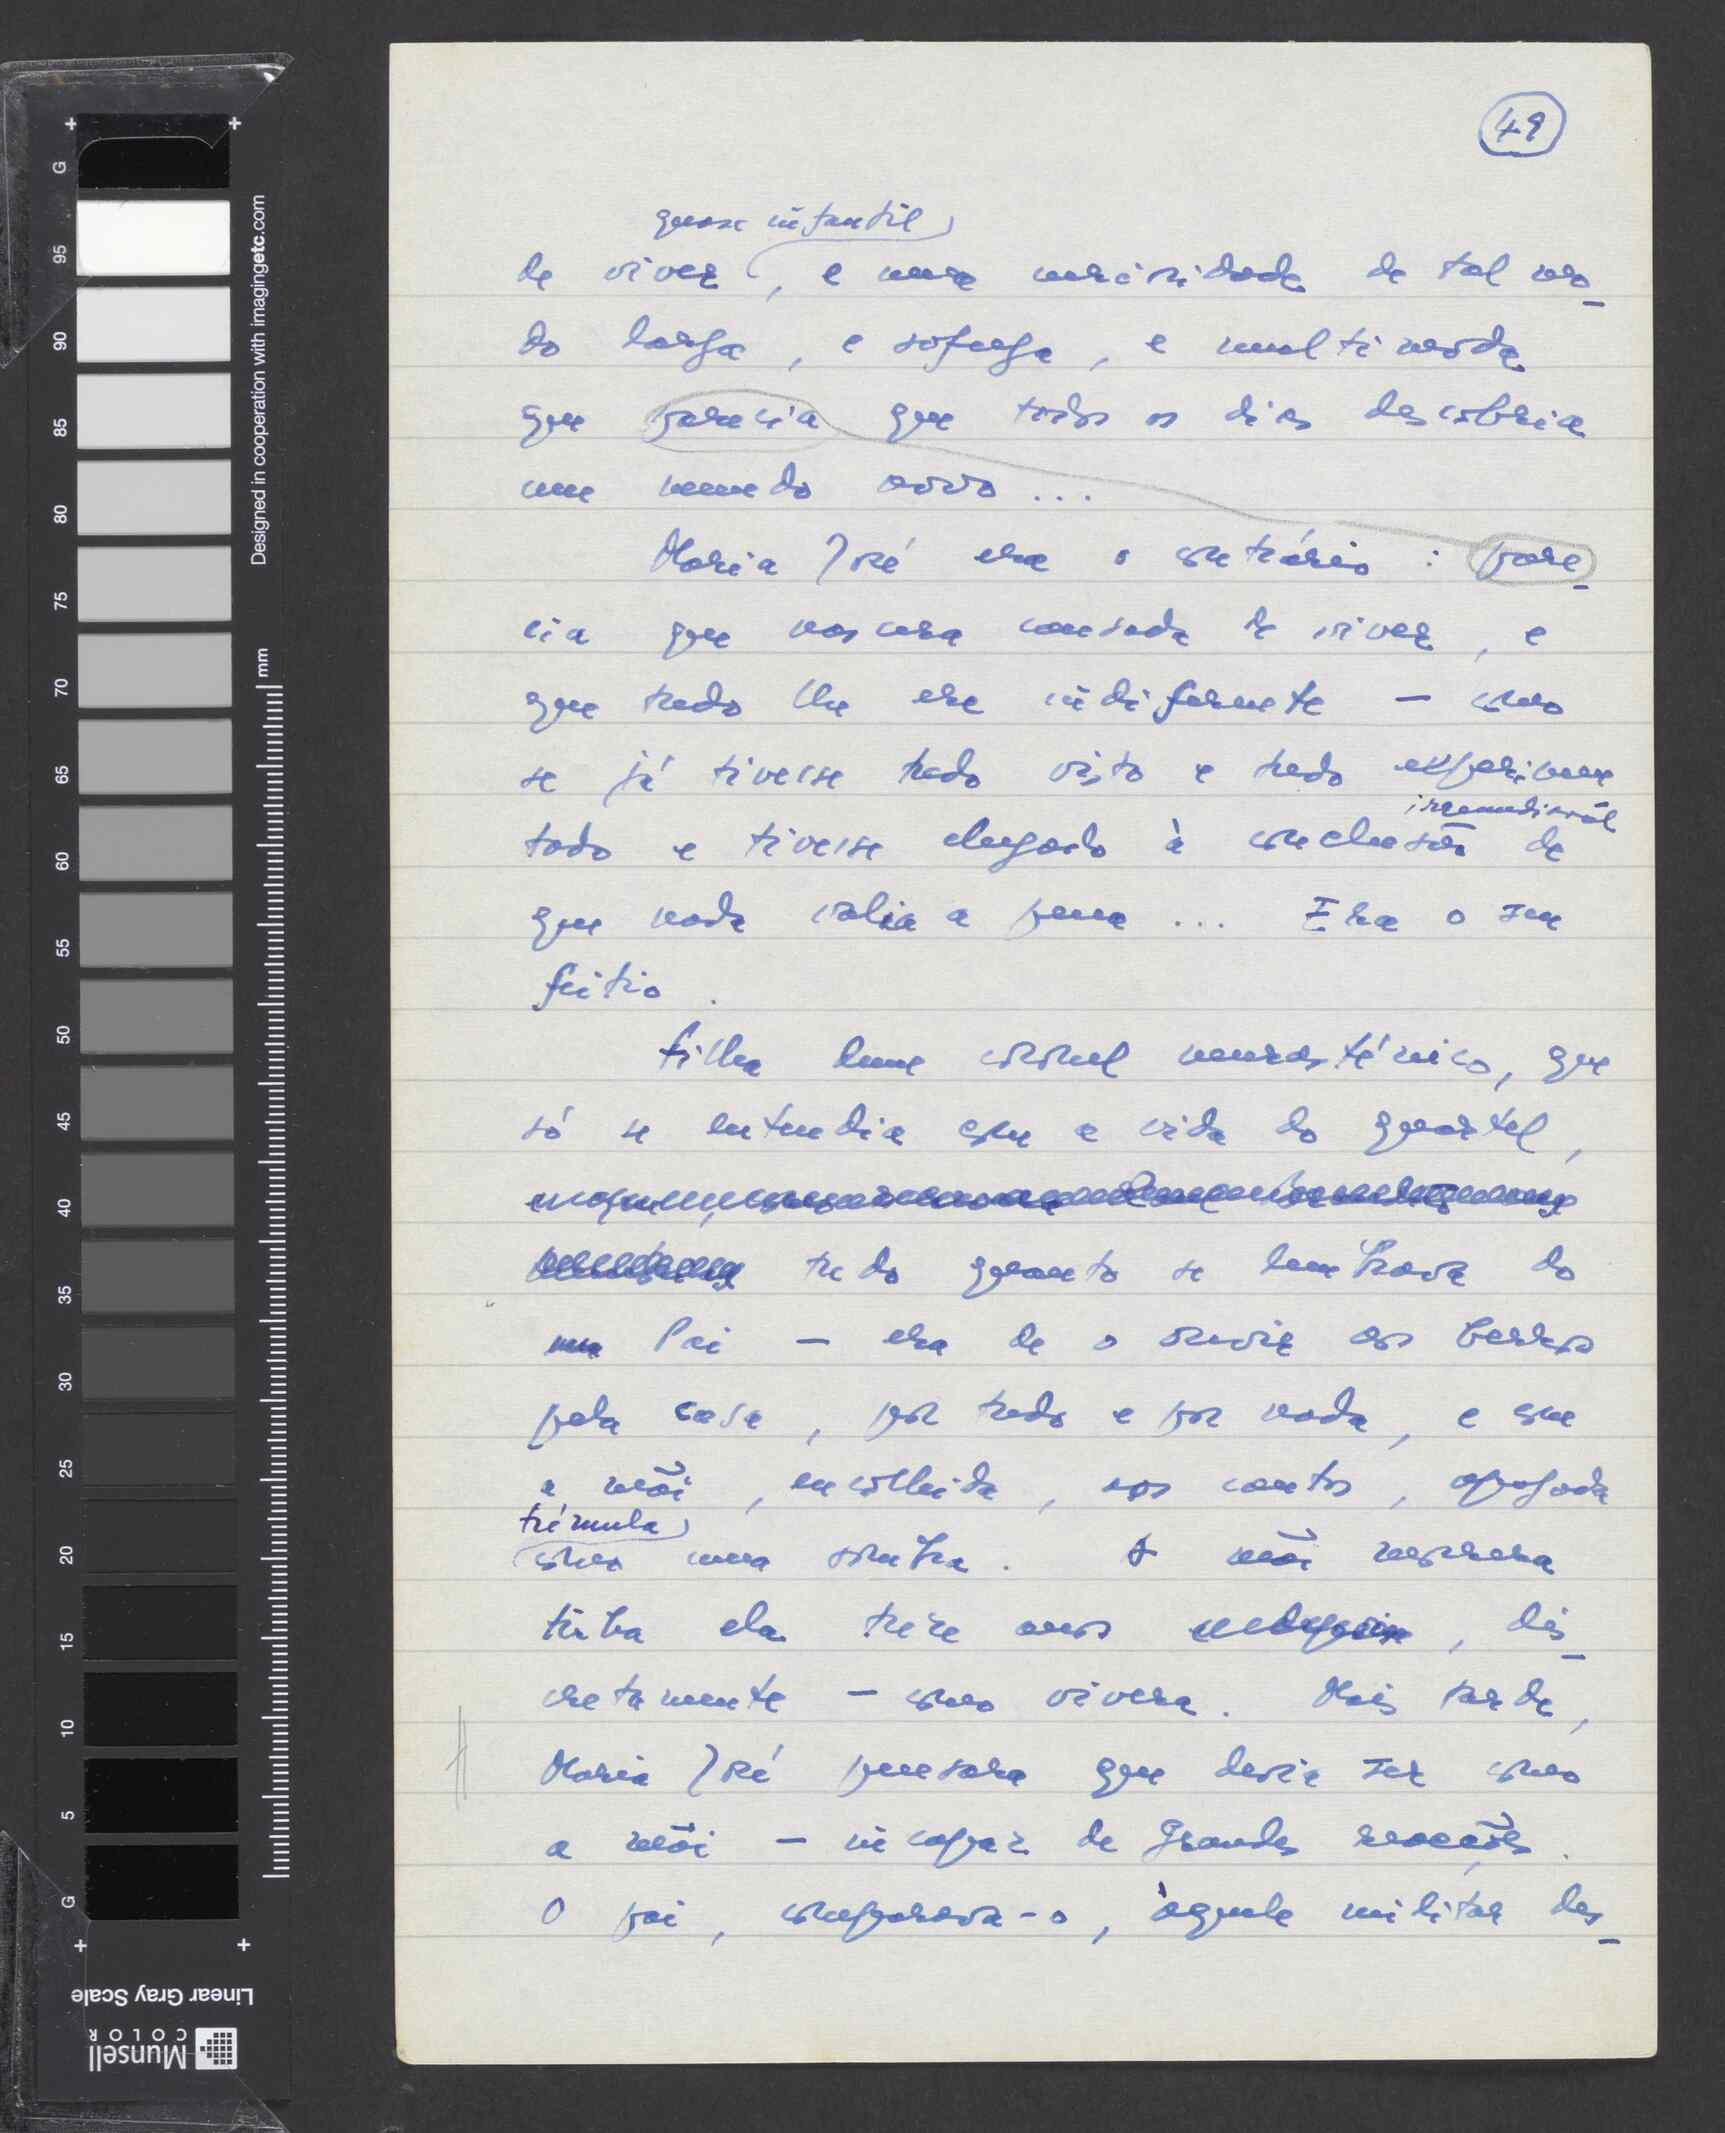 49
quase infantil
de viver, e uma curiosidade de tal mo-
do larga, e sôfrega, e multímoda
que parecia que todos os dias descobria
um mundo novo...
Maria José era o contrário: pare-
cia que nascera cansada de viver, e
que tudo lhe era indiferente — como
se já tivesse tudo visto e tudo experimen
irremediável
tado e tivesse chegado à conclusão de
que nada valia a pena... Era o seu
feitio.
Filha dum coronel neurasténico, que
só se entendia com a vida do quartel,
tudo quanto se lembrava do
Pai — era de o ouvir aos berros
pela casa, por tudo e por nada, e com
a mãi, encolhida, aos cantos, apagada
trémula
como uma sombra. A mãi morrera
tinha ela treze anos, dis-
cretamente — como vivera. Mais tarde,
Maria José pensara que devia ser como
a mãi — incapaz de grandes reacções.
O pai, comparava-o, àquele militar des-
G
95
90
85
80
75
70
65
60
55
50
45
40
35
30
25
20
15
10
5
G
mm
Designed in cooperation with imagingetc.com
Linear Gray Scale
Munsell
COLOR